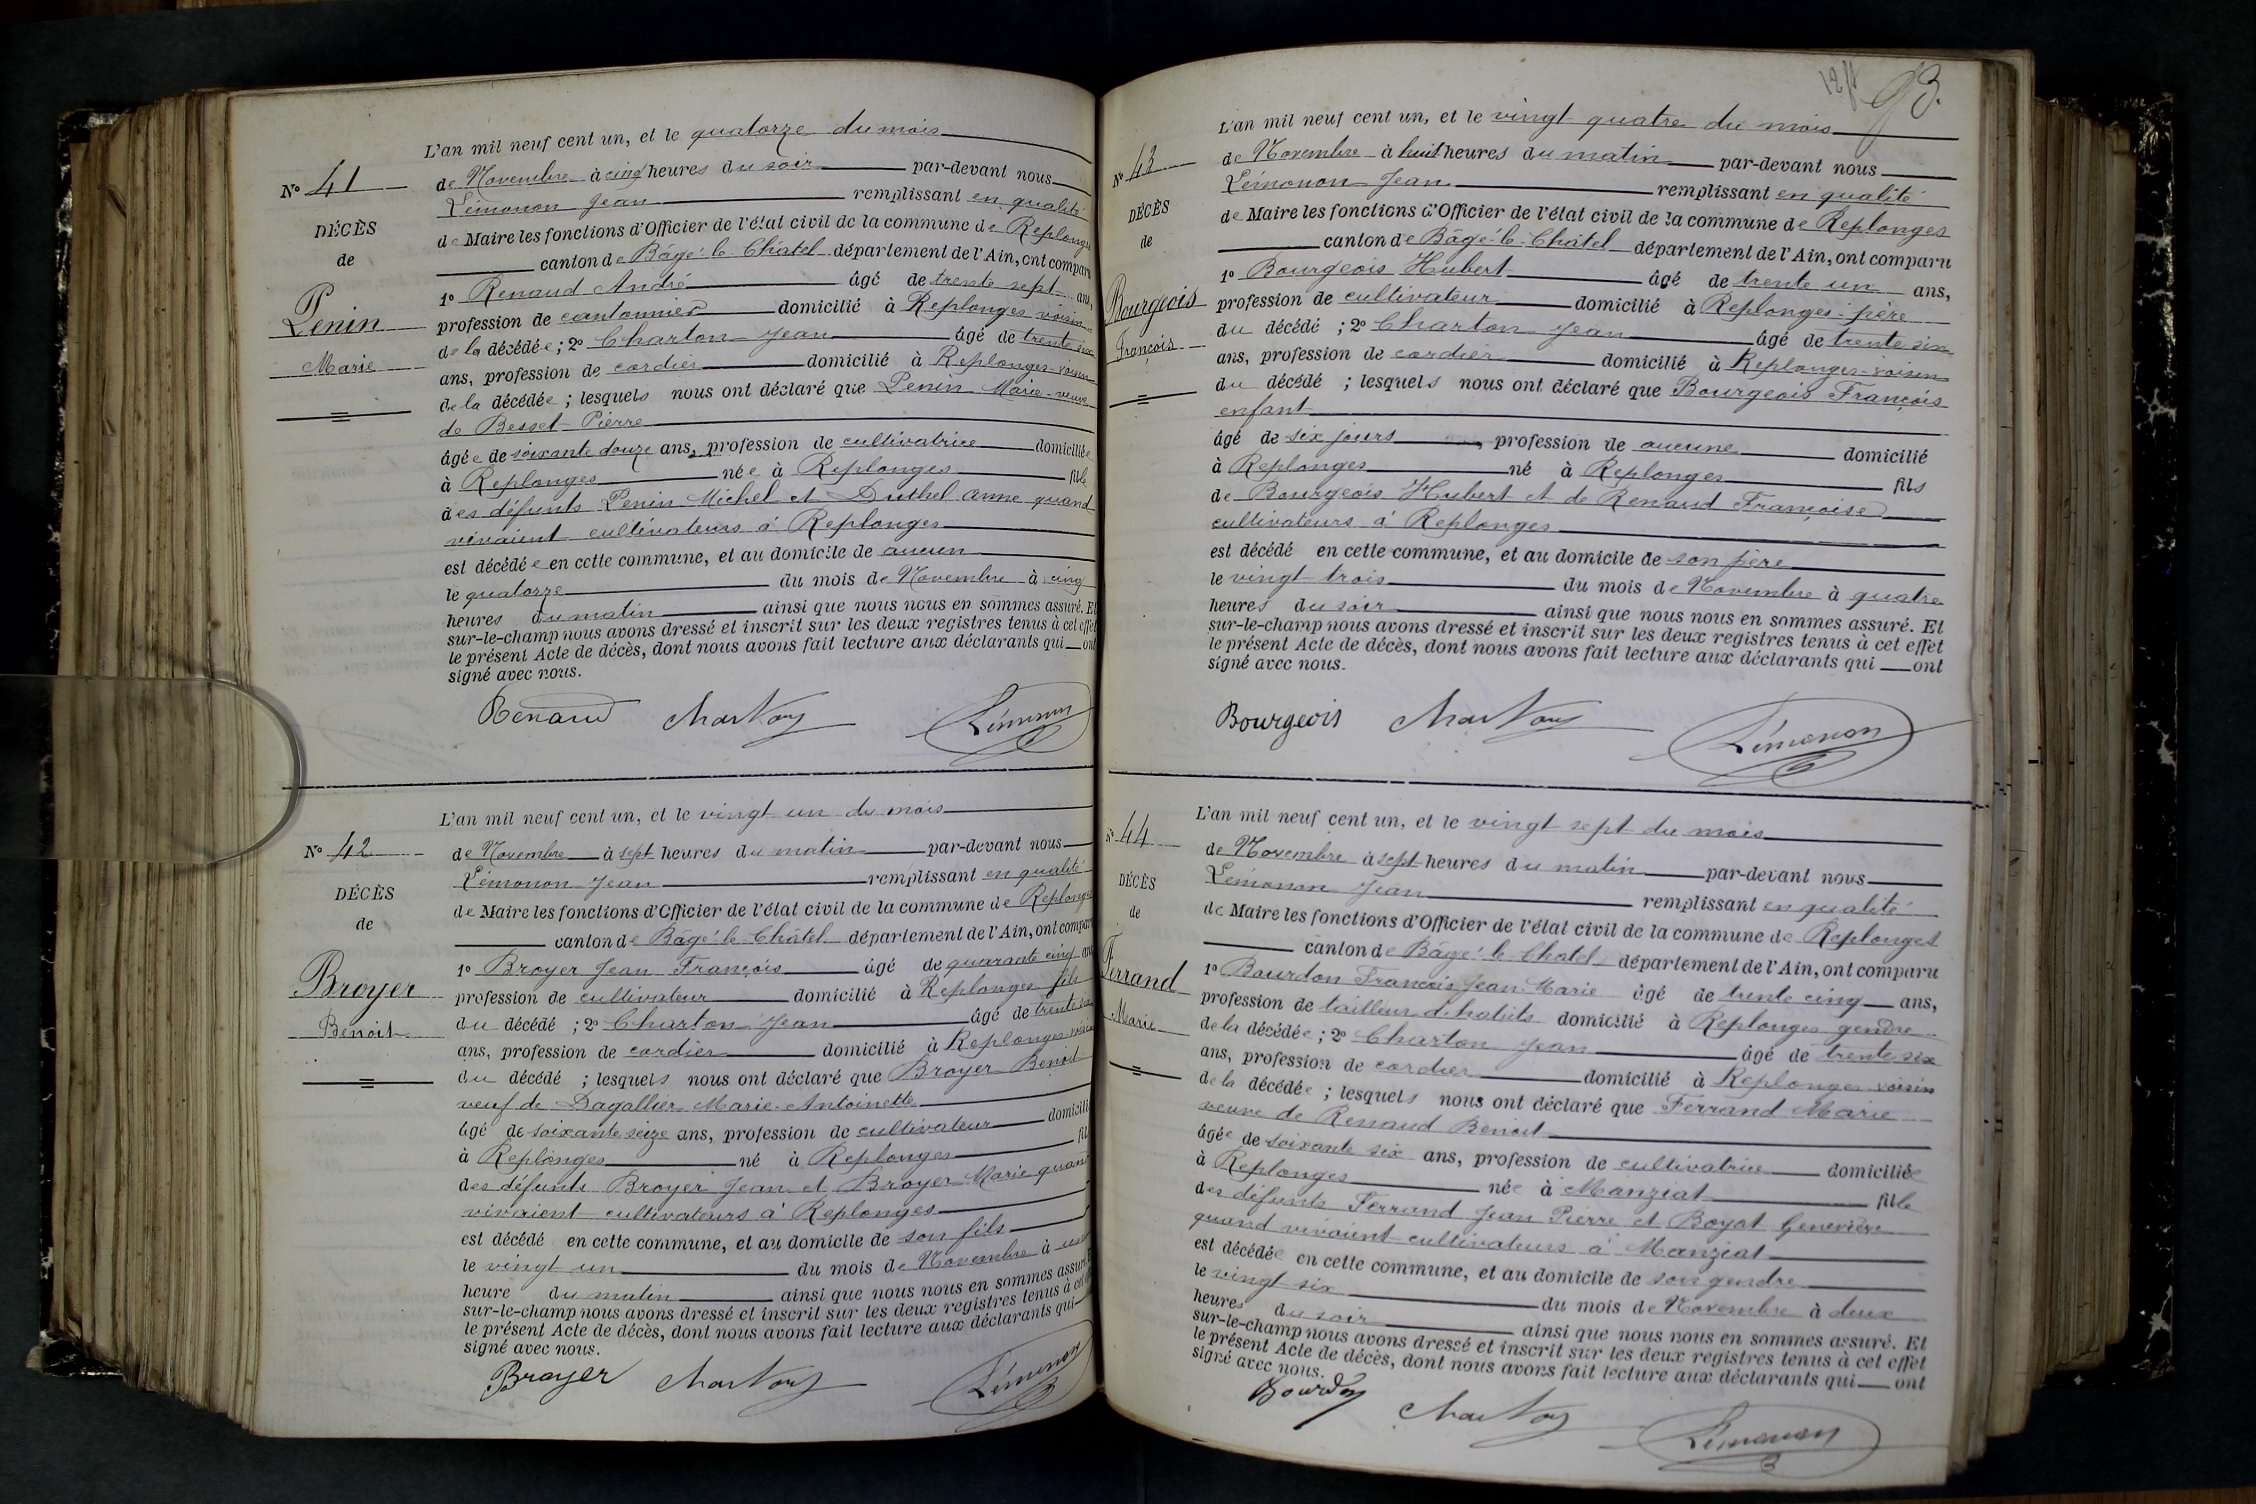 L'an mil neuf cent un, et le quatorze du mois
N° 41
de Novembre à cinq heures du soir par-devant nous
Lémonon Jean remplissant en qualité
DÉCÈS
de Maire les fonctions d'Officier de l'état civil de la commune de Replonges
de
canton de Bâgé-le-Châtel département de l'Ain, ont comparu
1° Renaud André âgé de trente sept ans,
Penin
profession de cantonnier domicilié à Replonges voisin
de la décédée ; 2° Charton Jean âgé de trente six
Marie
ans, profession de cordier domicilié à Replonges-voisin
de la décédée ; lesquels nous ont déclaré que Penin Marie-veuve
de Besset Pierre
âgée de soixante douze ans, profession de cultivatrice domiciliée
à Replonges née à Replonges fille
des défunts Penin Michel et Duthel Anne quand
vivaient cultivateurs à Replonges
est décédée en cette commune, et au domicile de aucun
le quatorze du mois de Novembre à cinq
heures du matin ainsi que nous nous en sommes assuré. Et
sur-le-champ nous avons dressé et inscrit sur les deux registres tenus à cet effet
le présent Acte de décès, dont nous avons fait lecture aux déclarants qui ont
signé avec nous.
Renaud Charton Lémonon
L'an mil neuf cent un, et le vingt un du mois
N° 42
de Novembre à sept heures du matin par-devant nous
Lémonon Jean remplissant en qualité
DÉCÈS
de Maire les fonctions d'Officier de l'état civil de la commune de Replonges
de
canton de Bâgé-le-Châtel département de l'Ain, ont comparu
1° Broyer Jean François âgé de quarante cinq ans
Broyer
profession de cultivateur domicilié à Replonges fils
Benoit
du décédé ; 2° Charton Jean âgé de trente six
ans, profession de cordier domicilié à Replonges voisin
du décédé ; lesquels nous ont déclaré que Broyer Benoit
veuf de Dagallier Marie-Antoinette
âgé de soixante seize ans, profession de cultivateur domicilié
à Replonges né à Replonges fils
des défunts Broyer Jean et Broyer Marie quand
vivaient cultivateurs à Replonges
est décédé en cette commune, et au domicile de son fils
le vingt un du mois de Novembre à une
heure du matin ainsi que nous nous en sommes assuré. Et
sur-le-champ nous avons dressé et inscrit sur les deux registres tenus à cet
le présent Acte de décès, dont nous avons fait lecture aux déclarants qui
signé avec nous.
Broyer Charton Lémonon
93.
L'an mil neuf cent un, et le vingt quatre du mois
N° 43
de Novembre à huit heures du matin par-devant nous
Lémonon Jean remplissant en qualité
DÉCÈS
de Maire les fonctions d'Officier de l'état civil de la commune de Replonges
de
canton de Bâgé-le-Châtel département de l'Ain, ont comparu
1° Bourgeois Hubert âgé de trente un ans,
Bourgeois
profession de cultivateur domicilié à Replonges-père
du décédé ; 2° Charton Jean âgé de trente six
François
ans, profession de cordier domicilié à Replonges-voisin
du décédé ; lesquels nous ont déclaré que Bourgeois François
enfant
âgé de six jours, profession de aucune domicilié
à Replonges né à Replonges fils
de Bourgeois Hubert et de Renaud Françoise
cultivateurs à Replonges
est décédé en cette commune, et au domicile de son père
le vingt trois du mois de Novembre à quatre
heures du soir ainsi que nous nous en sommes assuré. Et
sur-le-champ nous avons dressé et inscrit sur les deux registres tenus à cet effet
le présent Acte de décès, dont nous avons fait lecture aux déclarants qui ont
signé avec nous.
Bourgeois Charton Lémonon
L'an mil neuf cent un, et le vingt sept du mois
N° 44
de Novembre à sept heures du matin par-devant nous
Lémonon Jean remplissant en qualité
DÉCÈS
de Maire les fonctions d'Officier de l'état civil de la commune de Replonges
de
canton de Bâgé-le-Châtel département de l'Ain, ont comparu
1° Bourdon François Jean-Marie âgé de trente cinq ans,
Ferrand
profession de tailleur d'habits domicilié à Replonges gendre
Marie
de la décédée ; 2° Charton Jean âgé de trente six
ans, profession de cordier domicilié à Replonges voisin
de la décédée ; lesquels nous ont déclaré que Ferrand Marie
veuve de Renaud Benoit
âgée de soixante six ans, profession de cultivatrice domiciliée
à Replonges née à Manziat fille
des défunts Ferrand Jean Pierre et Boyat Geneviève
quand vivaient cultivateurs à Manziat
est décédée en cette commune, et au domicile de son gendre
le vingt six du mois de Novembre à deux
heures du soir ainsi que nous nous en sommes assuré. Et
sur-le-champ nous avons dressé et inscrit sur les deux registres tenus à cet effet
le présent Acte de décès, dont nous avons fait lecture aux déclarants qui ont
signé avec nous.
Bourdon Charton Lémonon